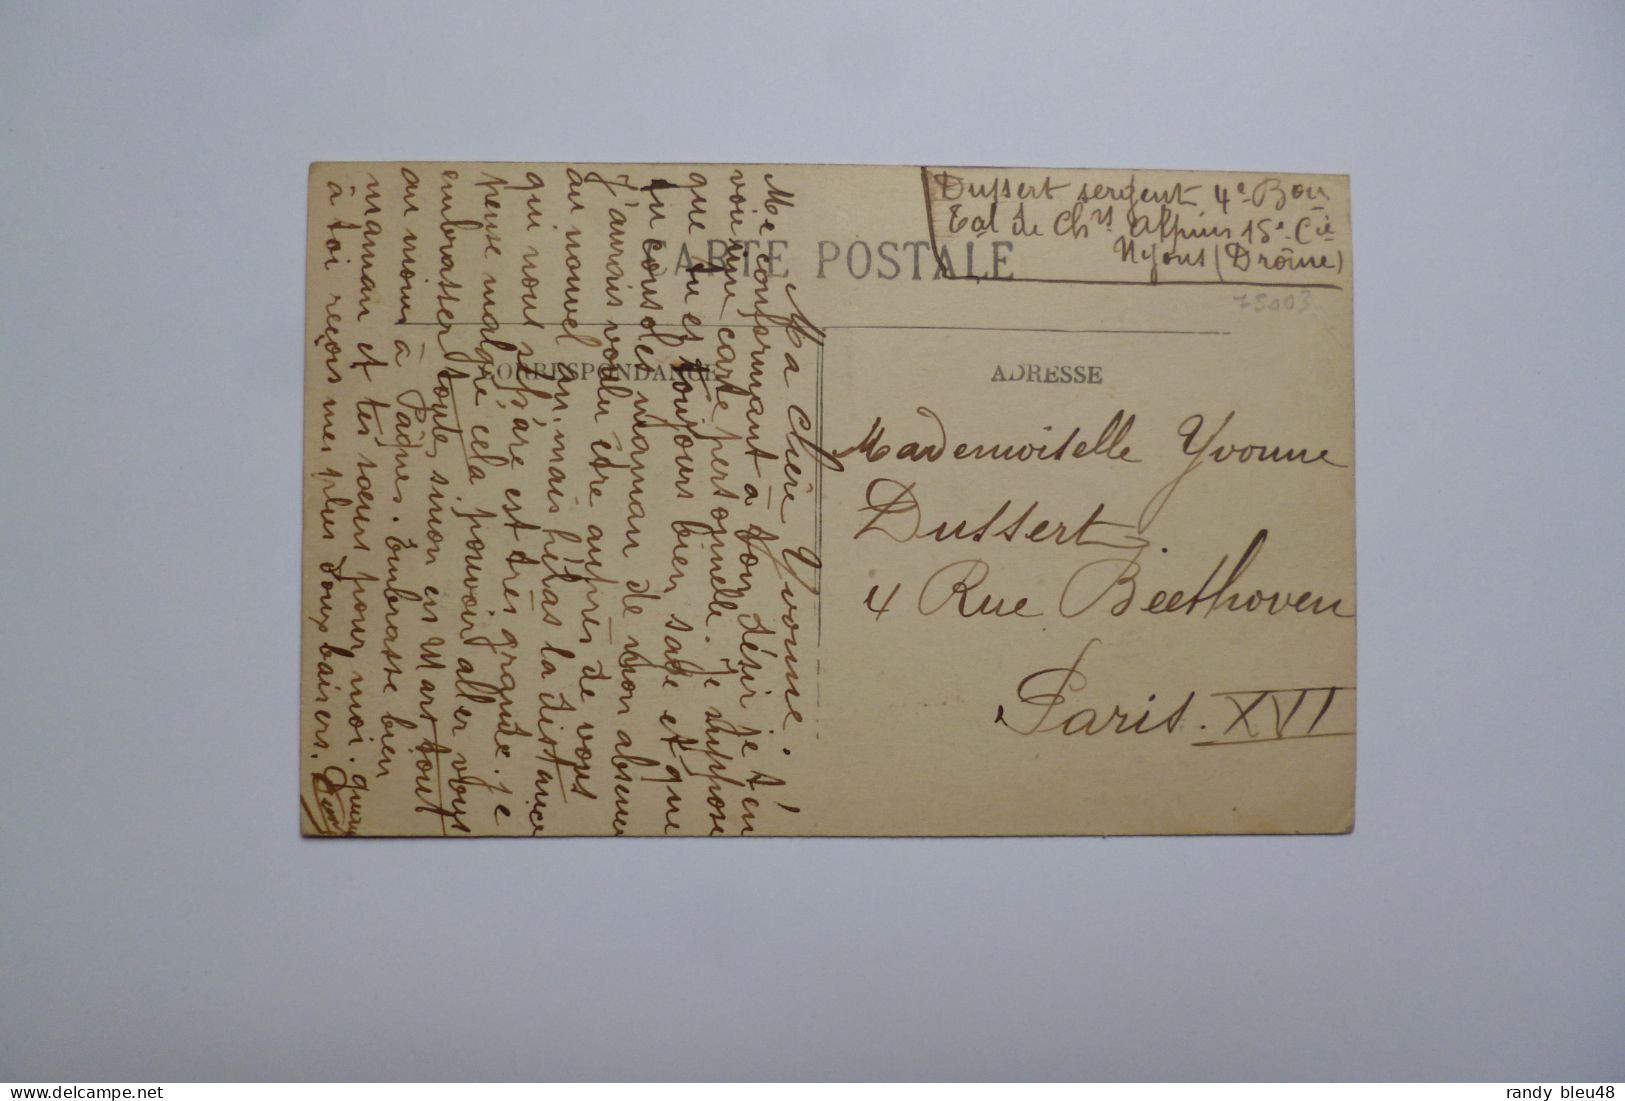 Dussert sergent 4e Bon
Tal de Chrs Alpins 15e Cie
Nyons (Drôme)
CARTE POSTALE
75003
CORRESPONDANCE
ADRESSE
Ma chère Yvonne.
Me conformant à ton désir je t'en
voie une carte personnelle. Je suppose
que tu es toujours bien sage et que
tu consoles maman de mon absence
J'aurais voulu être auprès de vous
au nouvel an, mais hélas la distance
qui nous sépare est très grande. je
pense malgré cela pouvoir aller vous
embrasser toutes, sinon en Mars tout
au moins à Pâques. Embrasse bien
maman et tes sœurs pour moi.
à toi reçois mes plus doux baisers.
Mademoiselle Yvonne
Dussert.
4 Rue Beethoven
Paris. XVI
delcampe.net
randy bleu48